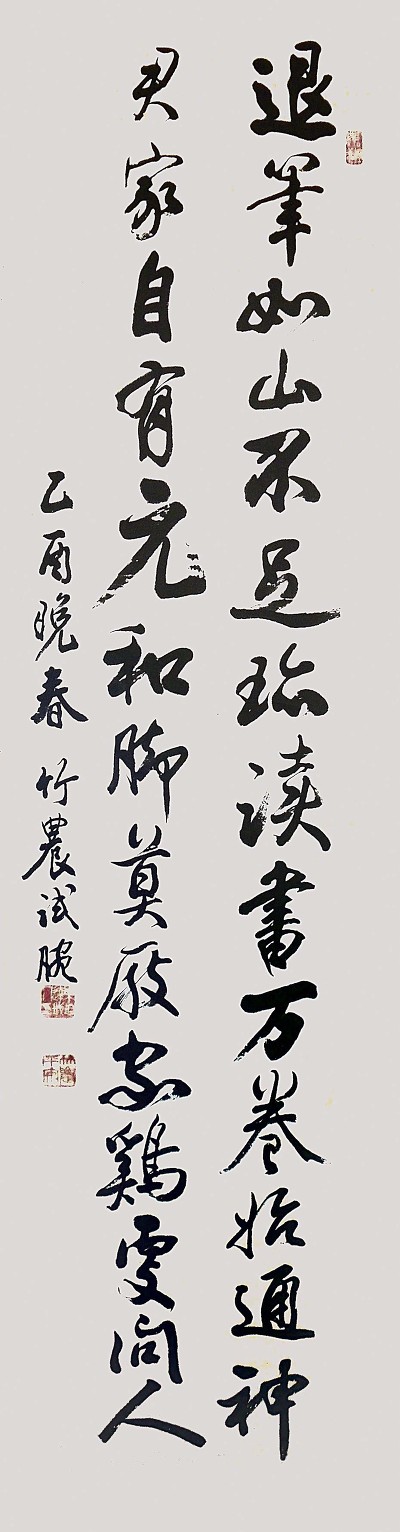 退筆如山不足珍读書万卷始通神
君家自有元和脚莫厭家鷄更问人
乙酉晚春 竹農试腕